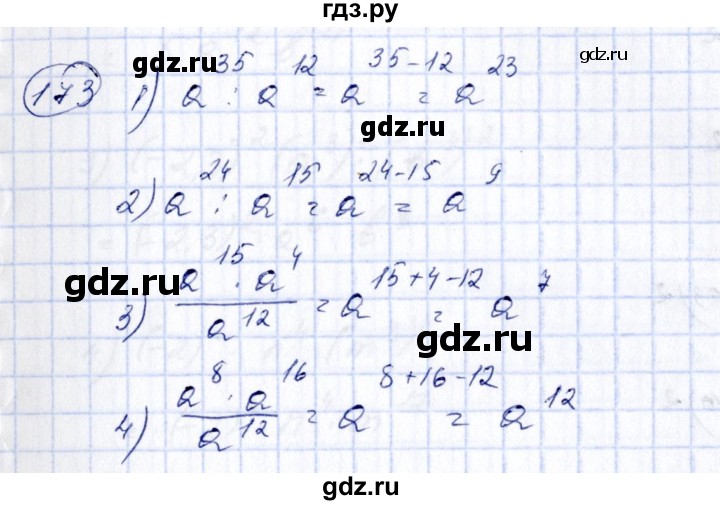 гдз.ру
173
1) a^35 : a^12 = a^(35-12) = a^23
gdz.ru
gdz.ru
gdz.ru
2) a^24 : a^15 = a^(24-15) = a^9
gdz.ru
3) (a^15 · a^4)/a^12 = a^(15+4-12) = a^7
gdz.ru
4) (a^8 · a^16)/a^12 = a^(8+16-12) = a^12
gdz.ru
gdz.ru